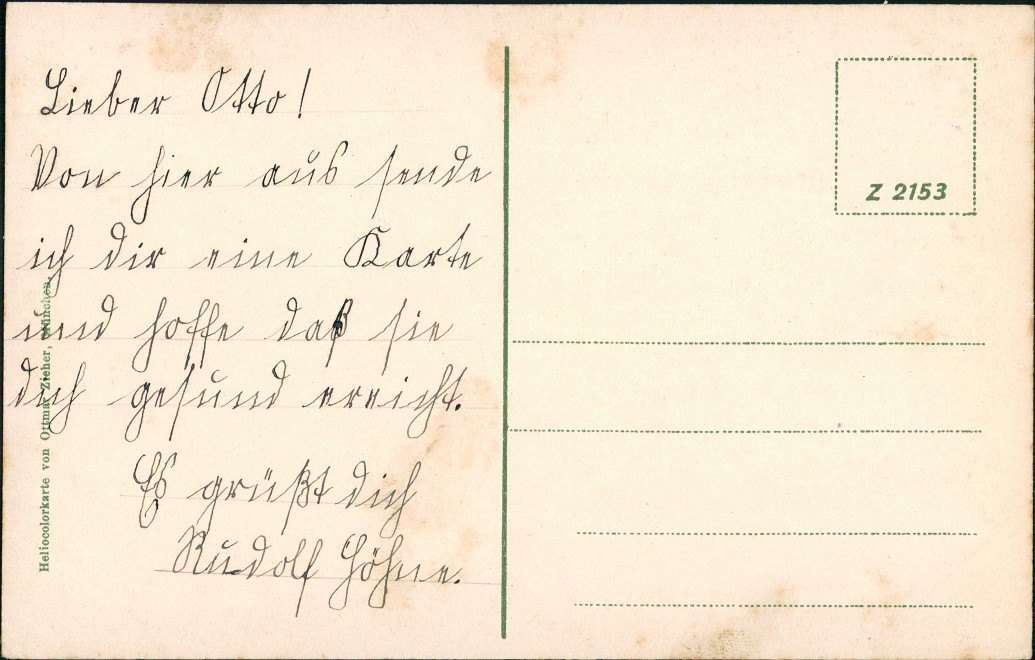 Lieber Otto!
Von hier aus sende
ich dir eine Karte
und hoffe daß sie
dich gesund erreicht.
Es grüßt dich
Rudolf Höhne.
Heliocolorkarte von Ottmar Zieher, München.
Z 2153